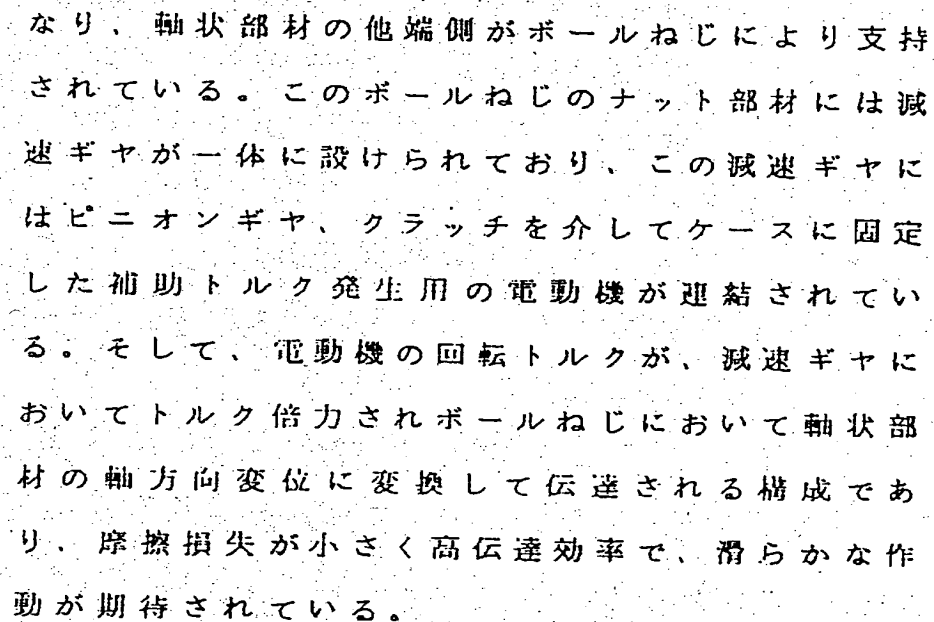 なり、軸状部材の他端側がボールねじにより支持
されている。このボールねじのナット部材には減
速ギヤが一体に設けられており、この減速ギヤに
はピニオンギヤ、クラッチを介してケースに固定
した補助トルク発生用の電動機が連結されてい
る。そして、電動機の回転トルクが、減速ギヤに
おいてトルク倍力されボールねじにおいて軸状部
材の軸方向変位に変換して伝達される構成であ
り、摩擦損失が小さく高伝達効率で、滑らかな作
動が期待されている。